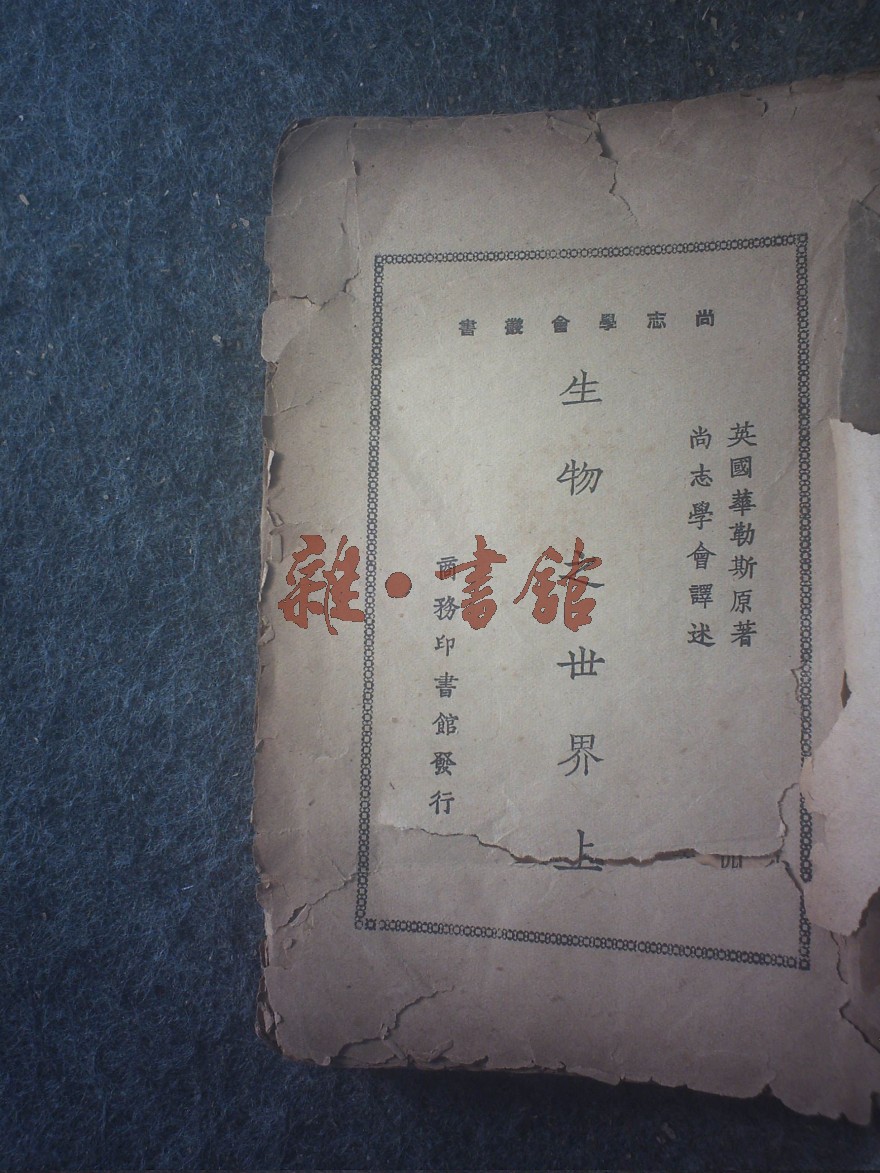 尚志學會叢書
英國華勒斯原著
尚志學會譯述
生物之世界上
商務印書館發行
雜·書館